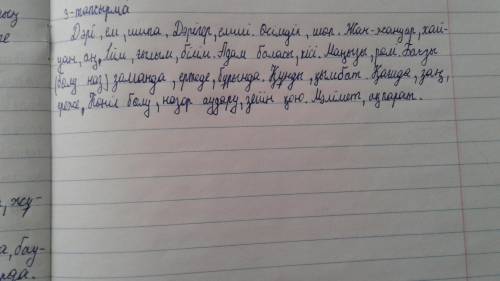 3-тапсырма
Дәрі, ем, шипа, Дәрігер, емші. Өсімдік, шөп. Жан-жануар, хай-
уан, аң, Ілім, ғылым, білім. Адам баласы, кісі. Маңызы, рөлі. Бағзы
(бағу наз) заманда, ертеде, бұрында. Құнды, қымбат. Қағида, заң,
ереже, Көңіл бөлу, назар аудару, зейін қою. Мәлімет, ақпарат.
, жү-
а, бау-
рда.